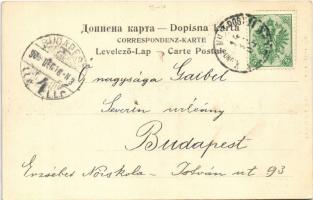 Дописна карта — Dopisna karta
CORRESPONDENZ-KARTE
Levelező-Lap — Carte Postale
BUDAPEST
nagysága Gaibel
Severin urleány
Budapest
Erzsébet Nőiskola - István ut 93